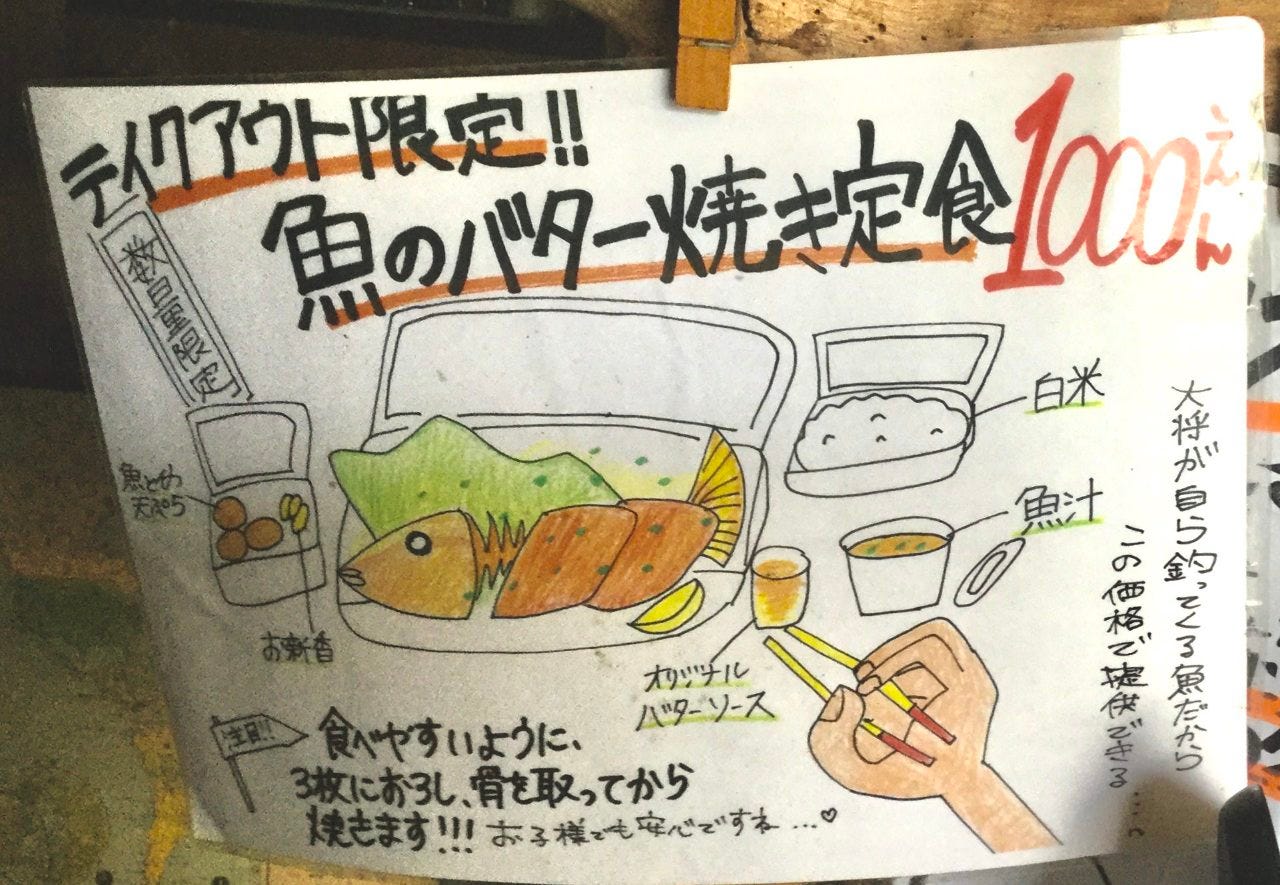 テイクアウト限定!!
魚のバター焼き定食
1000えん
数量限定
白米
魚汁
大将が自ら釣ってくる魚だから
この価格で提供できる....。
天ぷら
お新香
オリジナル
バターソース
注目!!
食べやすいように、
3枚におろし、骨を取ってから
焼きます!!! お子様でも安心ですね...♡